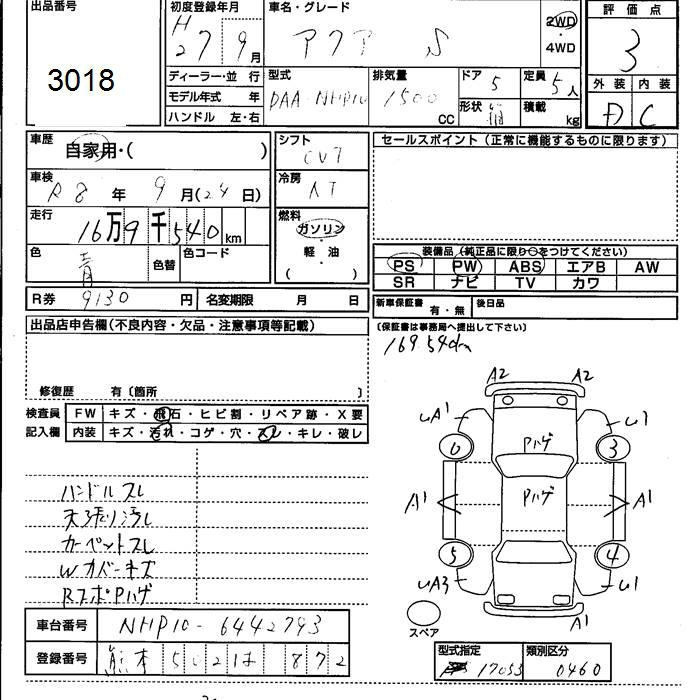 出品番号
3018
初度登録年月
H27 9月
車名・グレード
アクア S
2WD
・
4WD
評価点
3
外装 内装
D C
ディーラー・並 行
モデル年式 年
ハンドル 左・右
型式
DAA NHP10
排気量
1500
CC
ドア
5
定員
5人
形状
積載
kg
車歴
自家用・( )
車検
R8年 9月(24日)
走行
16万9千540km
色
青
色替
色コード
シフト
CVT
冷房
AT
燃料
ガソリン
・
軽 油
( )
セールスポイント (正常に機能するものに限ります)
装備品 (純正品に限り○をつけてください)
PS PW ABS エアB AW
SR ナビ TV カワ
R券 9130 円
名変期限 月 日
新車保証書 有・無
後日品
(保証書は事務局へ提出して下さい)
169540km
出品店申告欄(不良内容・欠品・注意事項等記載)
修復歴 有〔箇所 〕
検査員
記入欄
FW キズ・飛石・ヒビ割・リペア跡・X要
内装 キズ・汚れ・コゲ・穴・スレ・キレ・破レ
ハンドルスレ
天張り汚レ
カーペットスレ
Wカバーキズ
RスポPハゲ
A2 A2
UA1 U1
Pハゲ
6 3
A1 Pハゲ A1
5 4
UA3 U1
A1
スペア
車台番号 NHP10-6442793
登録番号 熊本 502 は 872
型式指定 17053
類別区分 0460